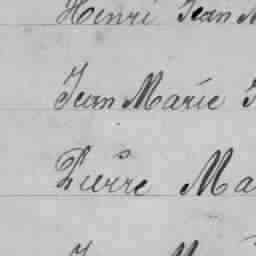 Henri Jean
Jean Marie
Pierre Ma